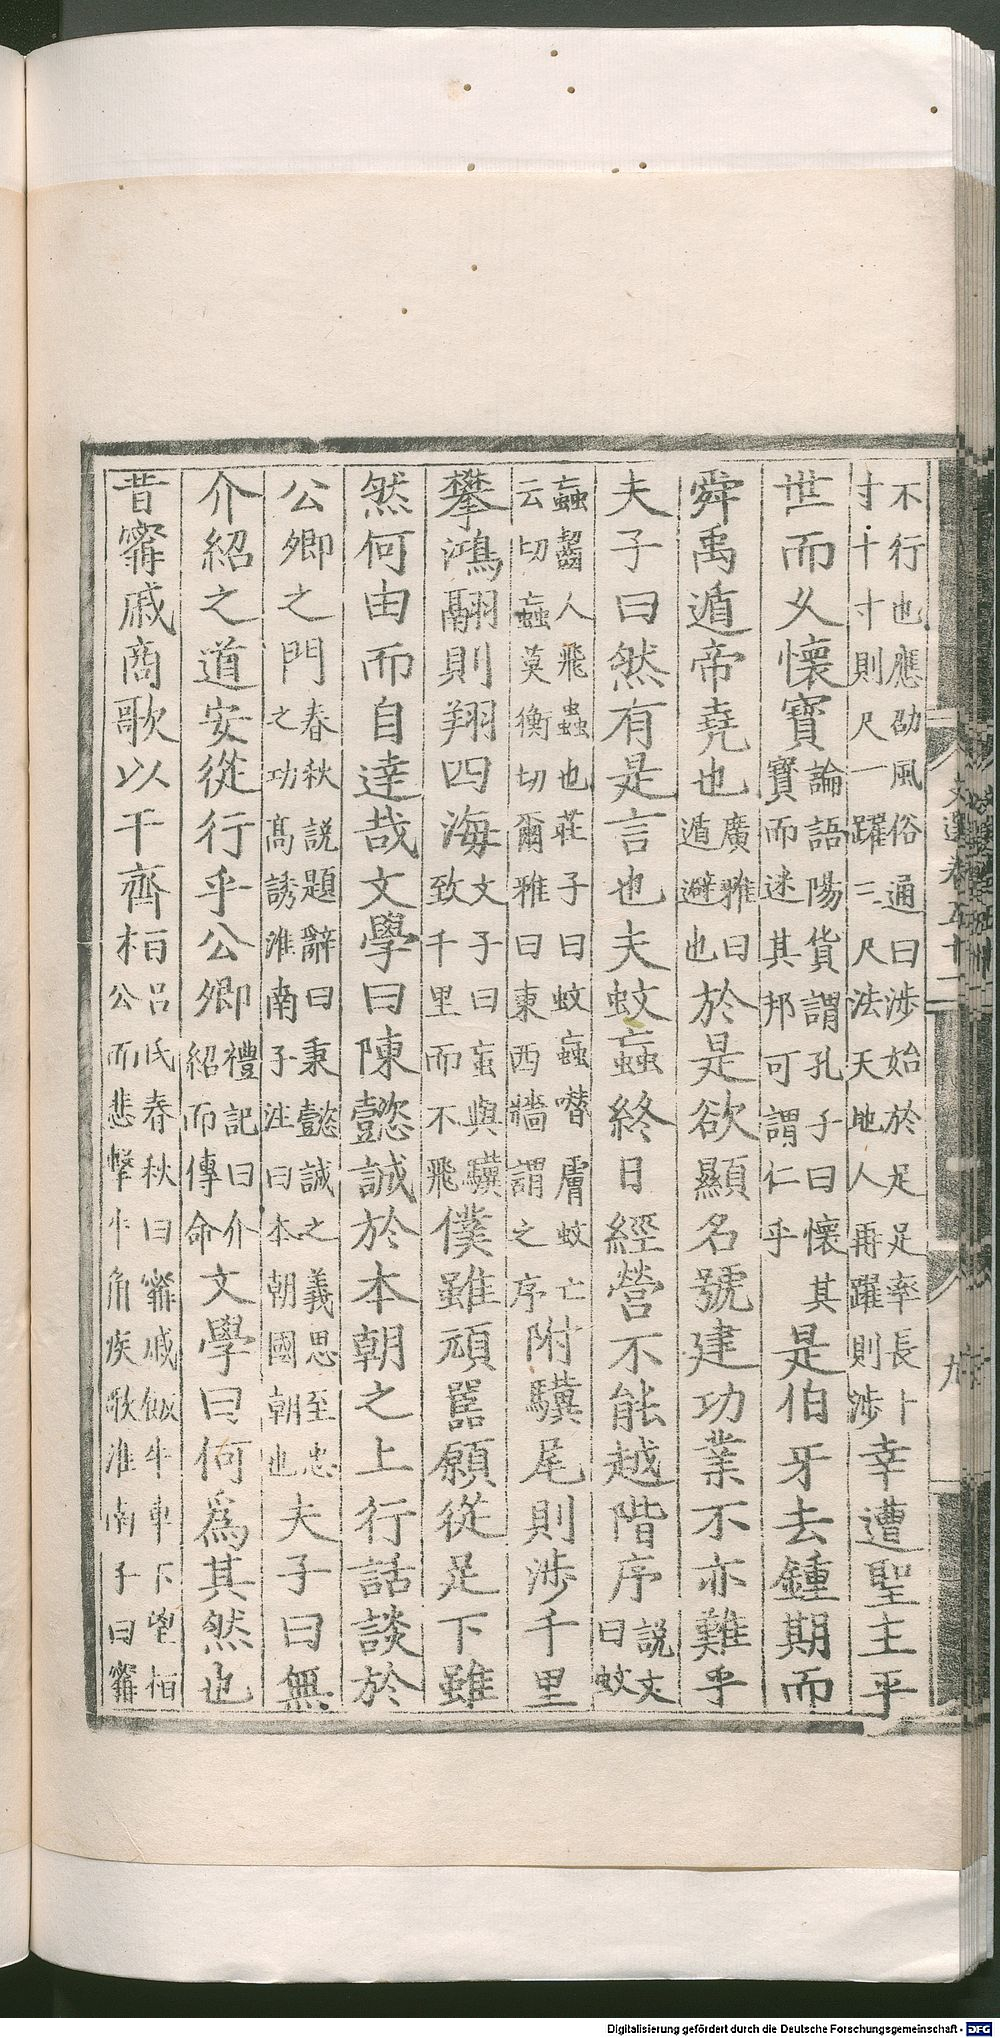 不行也應劭風俗通曰涉始於足足率長卜
寸十寸則尺一躍三尺法天地人再躍則涉
幸遭聖主平
世而乆懷寶
論語陽貨謂孔子曰懷其
寳而迷其邦可謂仁乎
是伯牙去鍾期而
舜禹遁帝堯也
廣雅曰
遁避也
於是欲顯名號建功業不亦難乎
夫子曰然有是言也夫蚊蝱終日經營不能越階序
說文
曰蚊
蝱齧人飛蟲也莊子曰蚊蝱噆膚蚊亡
云切蝱莫衡切爾雅曰東西牆謂之序
附驥尾則涉千里
攀鴻翮則翔四海
文子曰蝱與驥
致千里而不飛
僕雖頑嚚願從足下雖
然何由而自達哉文學曰陳懿誠於本朝之上行話談於
公卿之門
春秋說題辭曰秉懿誠之義思至忠
之功高誘淮南子注曰本朝國朝也
夫子曰無
介紹之道安從行乎公卿
禮記曰介
紹而傳命
文學曰何爲其然也
昔甯戚商歌以干齊桓
呂氏春秋曰甯戚飯牛車下望桓
公而悲擊牛角疾歌淮南子曰甯
文選卷五十一
九
Digitalisierung gefördert durch die Deutsche Forschungsgemeinschaft - DFG